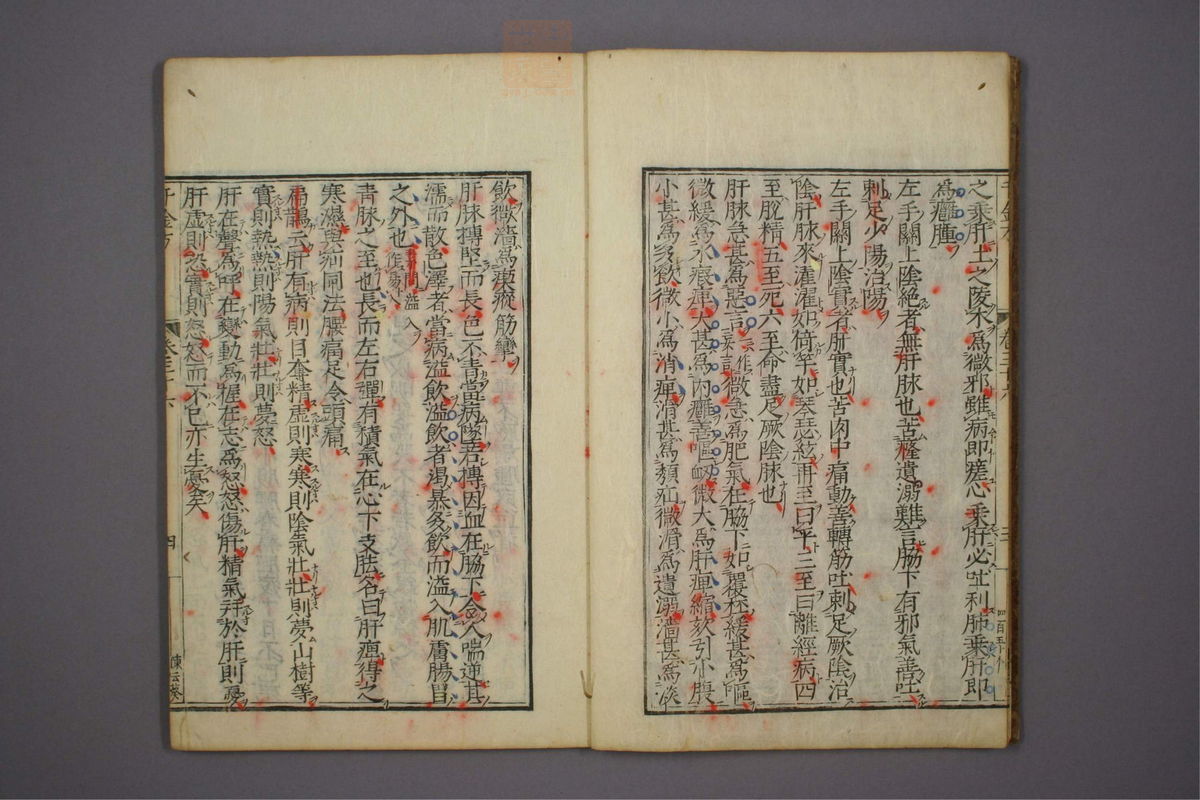 之乘肝土之陵木爲微邪雖病即瘥心乘肝必吐利肺乘肝即
爲癰腫
左手關上陰絕者無肝脉也苦癃遺溺難言脇下有邪氣善吐
刺足少陽治陽
左手關上陰實者肝實也苦肉中痛動善轉筋吐刺足厥陰治
陰肝脉來濯濯如倚竿如琴瑟絃再至曰平三至曰離經病四
至脫精五至死六至命盡足厥陰脉也
肝脉急甚爲惡言一作忘言微急爲肥氣在脇下如覆杯緩甚爲嘔
微緩爲水瘕痺大甚爲內癰善嘔衂微大爲肝痺縮欬引小腹
小甚爲多飲微小爲消癉滑甚爲㿉疝微滑爲遺溺濇甚爲淡
飲微濇爲瘈瘲筋攣
肝脉搏堅而長色不青當病墜若搏因血在脇下令人喘逆其
濡而散色澤者當病溢飲溢飲者渴暴多飲而溢入肌膚腸胃
之外也素問溢作易入
青脉之至也長而左右彈有積氣在心下支胠名曰肝痺得之
寒濕與疝同法腰痛足令頭痛
扁鵲云肝有病則目奪精虛則寒寒則陰氣壯壯則夢山樹等
實則熱熱則陽氣壯壯則夢怒
肝在聲爲呼在變動爲握在志爲怒怒傷肝精氣并於肝則憂
肝虛則恐實則怒怒而不已亦生憂矣
千金方
卷二十六
四